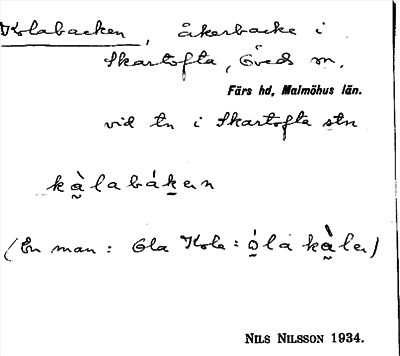 Kolabacken, åkerbacke i
Skartofta, Öveds sn,
Färs hd, Malmöhus län.
vid tn i Skartofta stn
kàlabáken
(En man: Ola Kola: óla kàla)
NILS NILSSON 1934.